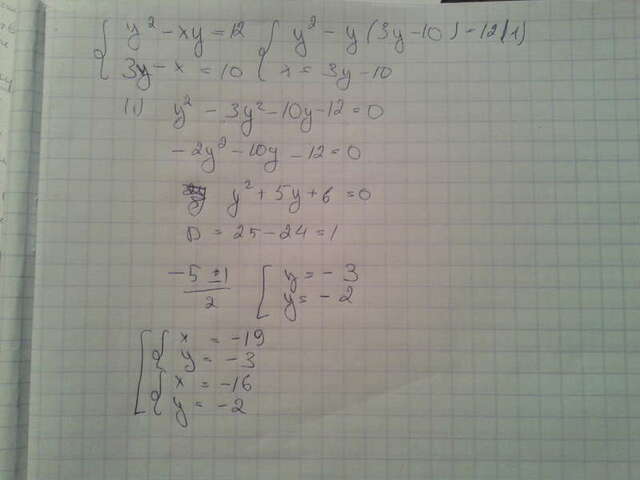 { y² - xy = 12 { y² - y(3y-10) = 12 (1)
3y - x = 10 x = 3y - 10
(1) y² - 3y² - 10y - 12 = 0
-2y² - 10y - 12 = 0
y² + 5y + 6 = 0
D = 25 - 24 = 1
-5 ± 1 / 2 [ y = -3
y = -2
[ { x = -19
y = -3
{ x = -16
y = -2